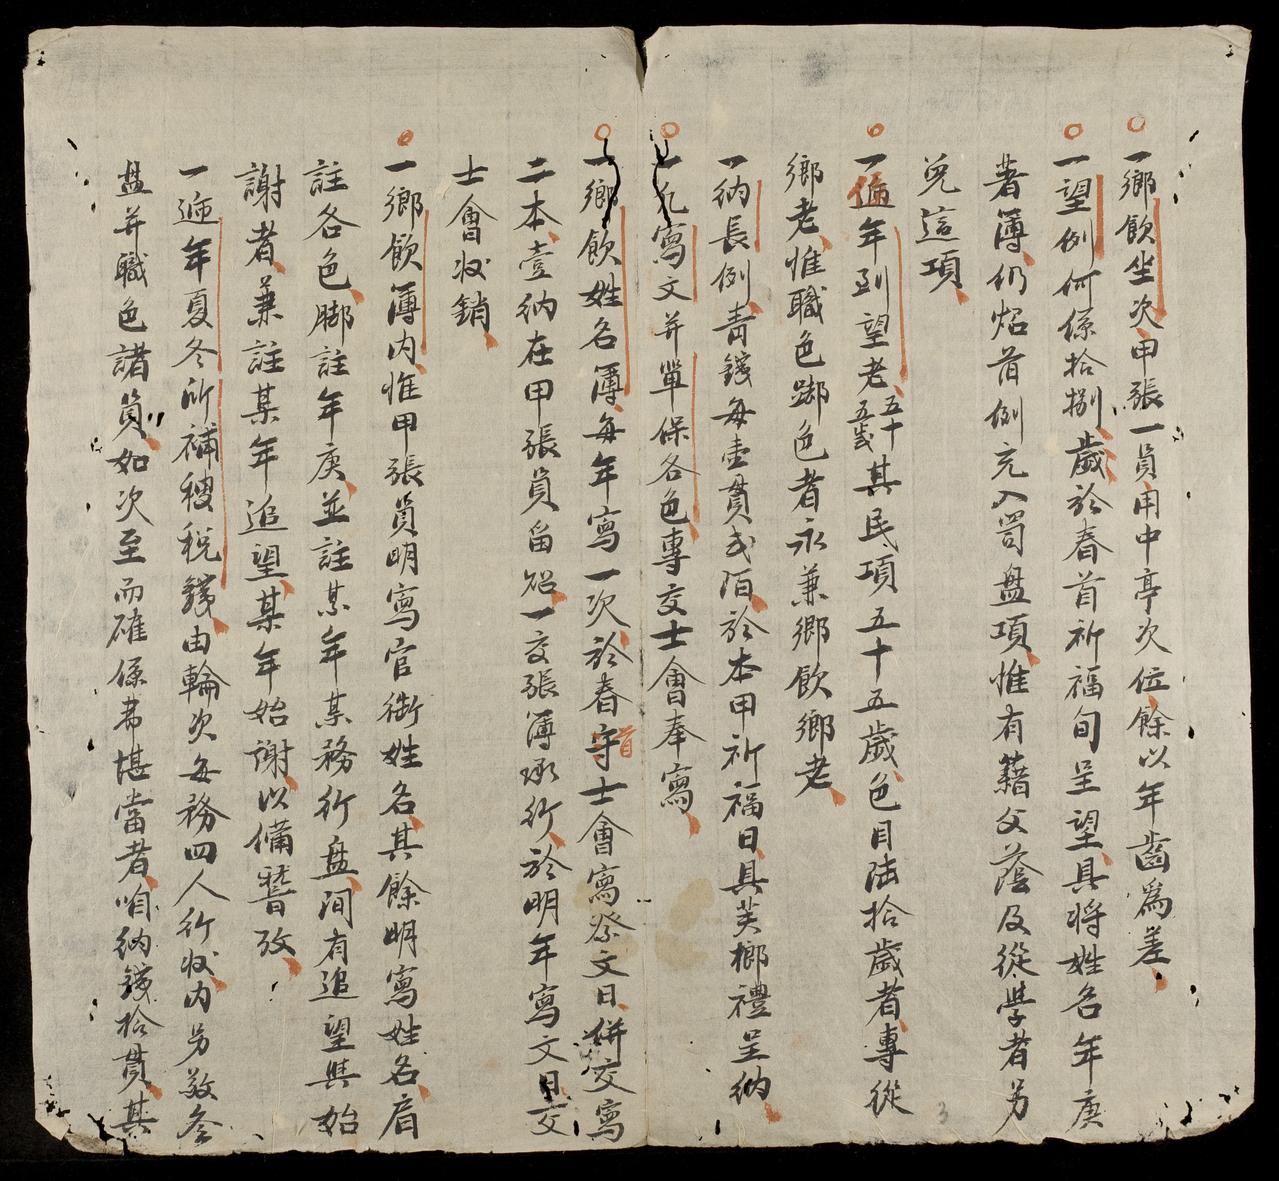 一鄉飲坐次甲張一員用中亭次位餘以年齒為差
一望例何係拾捌歲於春首祈福旬呈望具將姓名年庚
著簿仍炤首例充入司盘項惟有籍父蔭及從學者另
免這項
一遞年到望老五十五歲其民項五十五歲色目陆拾歲者專從
鄉老惟職色踋色者永兼鄉飲鄉老
一納長例青錢每壹貫弍陌於本甲祈福日具芙榔禮呈納
一凡寫文并單保各色專交士會奉寫
一鄉飲姓名簿每年寫一次於春首士會寫祭文日併交寫
二本壹納在甲張員留炤一交張簿承行於明年寫文日交
士會收銷
一鄉飲簿內惟甲張員明寫官銜姓名其餘明寫姓名肩
註各色脚註年庚並註某年某務行盘间有追望與始
謝者兼註某年追望某年始謝以備稽攷
一遞年夏冬所補稷稅錢由輪次每務四人行收內另敬叁
盘并職色諸員如次至而確係弗堪當者咱納錢拾貫其
3